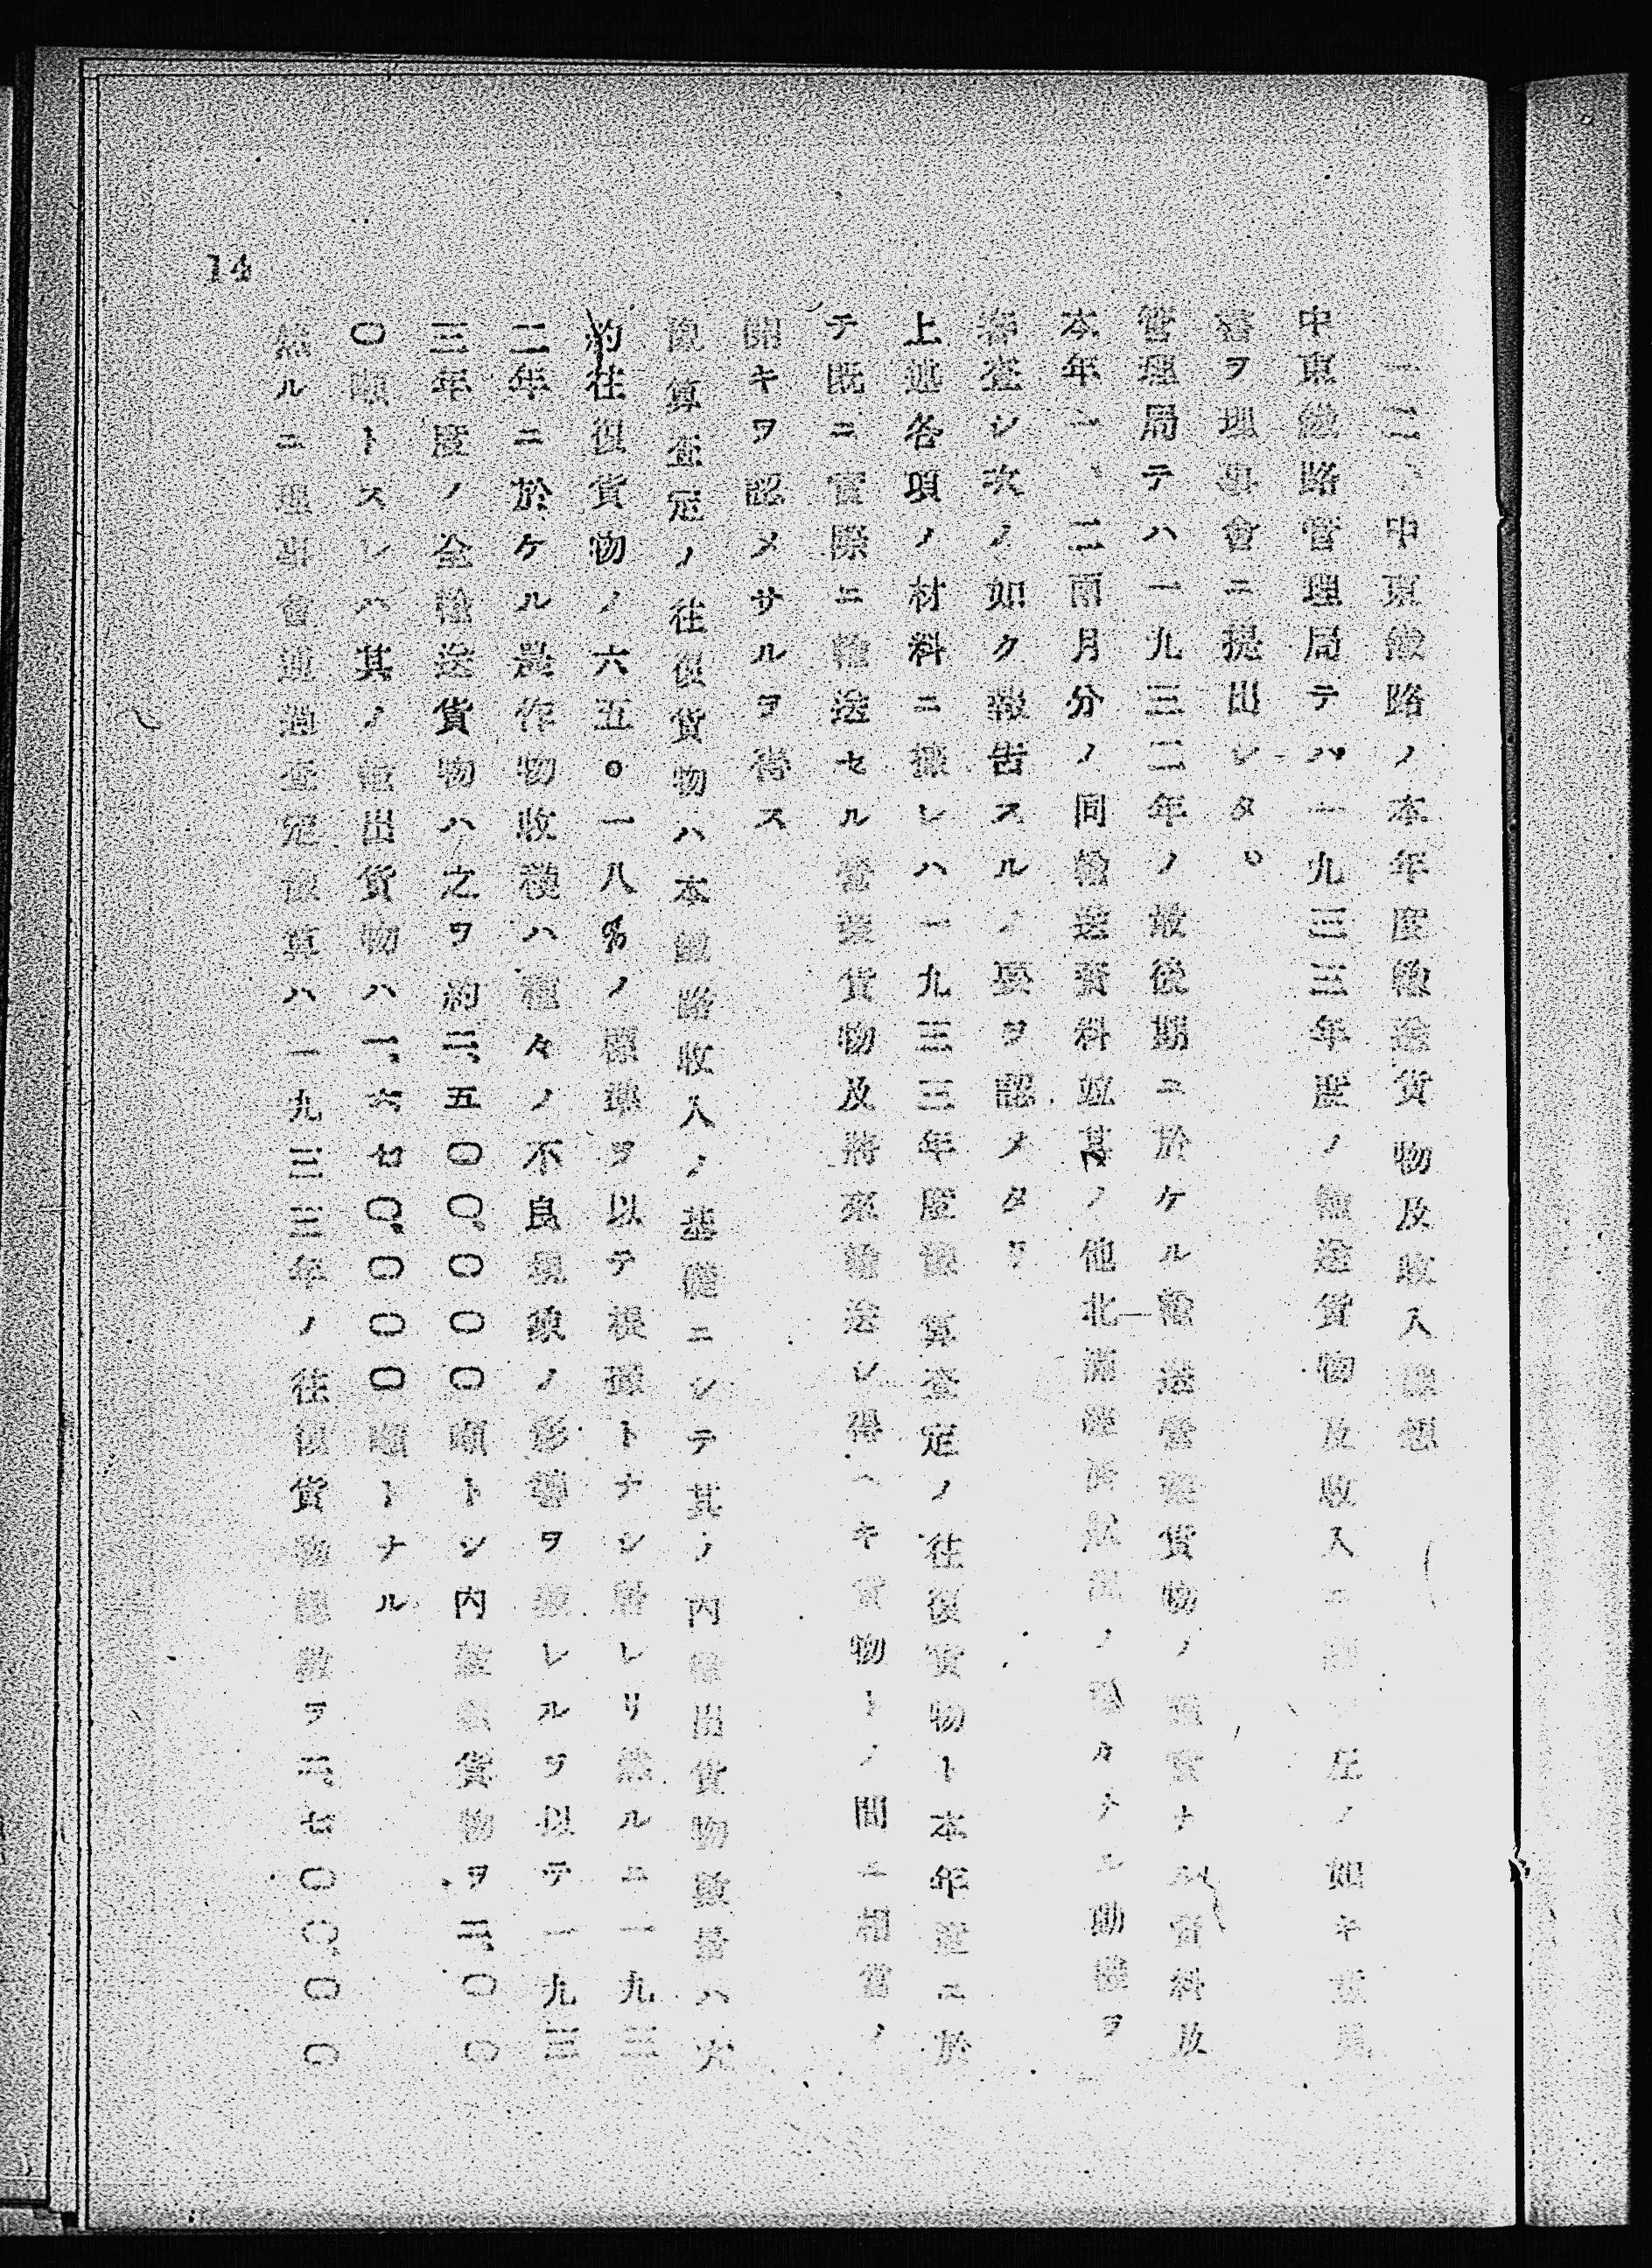 一二、中東鐵路ノ本年度輸送貨物及收入豫想
中東鐵路管理局テハ一九三三年度ノ輸送貨物及收入ニ 左ノ如キ
書ヲ理事會ニ提出シタリ
管理局テハ一九三二年ノ最後期ニ於ケル輸送營業貨物ノ ナル資料及
本年一、二兩月分ノ同輸送資料並其ノ他北滿經濟狀況ノ ナル動機ヲ
審査シ次ノ如ク報告スルノ要ヲ認メタリ
上述各項ノ材料ニ據レハ一九三三年度豫算査定ノ往復貨物ト本年 ニ於
テ既ニ實際ニ輸送セル營業貨物及將來輸送シ得ヘキ貨物トノ間ニ相當ノ
開キヲ認メサルヲ得ス
豫算査定ノ往復貨物ハ本鐵路收入ノ基礎ニシテ其ノ內輸出貨物數量ハ六
約往復貨物ノ六五。一八%ノ標準ヲ以テ根據トナシ居レリ然ルニ一九三
二年ニ於ケル農作物收穫ハ種々ノ不良現象ノ影響ヲ蒙レルヲ以テ一九三
三年度ノ全輸送貨物ハ之ヲ約三、五〇〇、〇〇〇噸トシ內 貨物ヲ三、〇〇
〇噸トスレハ其ノ輸出貨物ハ一、六七〇、〇〇〇噸トナル
然ルニ理事會通過査定豫算ハ一九三三年ノ往復貨物總數ヲ三、七〇〇、〇〇
14